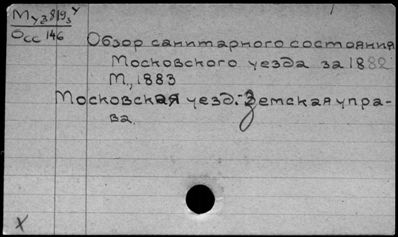 Му38193У
Осс 146
Обзор санитарного состояния
Московского уезда за 1882
М., 1883
Московская уезд. Земская упра-
ва.
X